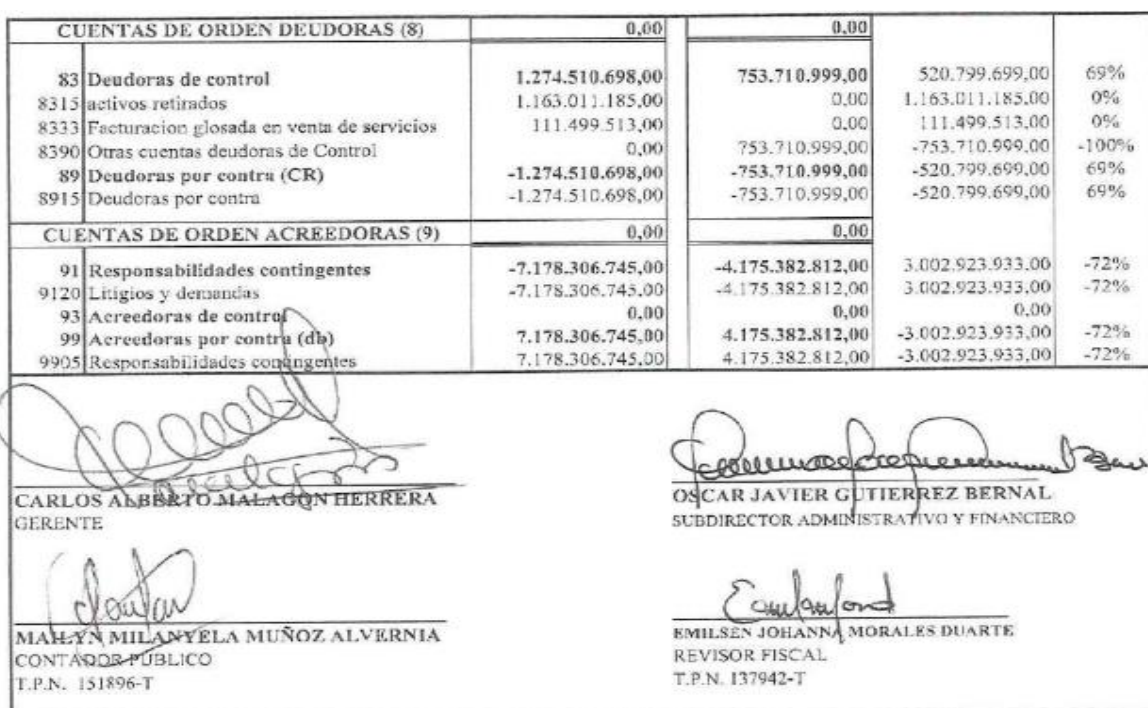 CUENTAS DE ORDEN DEUDORAS (8) 0,00 0,00
83 Deudoras de control 1.274.510.698,00 753.710.999,00 520.799.699,00 69%
8315 activos retirados 1.163.011.185,00 0,00 1.163.011.185,00 0%
8333 Facturacion glosada en venta de servicios 111.499.513,00 0,00 111.499.513,00 0%
8390 Otras cuentas deudoras de Control 0,00 753.710.999,00 -753.710.999,00 -100%
89 Deudoras por contra (CR) -1.274.510.698,00 -753.710.999,00 -520.799.699,00 69%
8915 Deudoras por contra -1.274.510.698,00 -753.710.999,00 -520.799.699,00 69%
CUENTAS DE ORDEN ACREEDORAS (9) 0,00 0,00
91 Responsabilidades contingentes -7.178.306.745,00 -4.175.382.812,00 3.002.923.933,00 -72%
9120 Litigios y demandas -7.178.306.745,00 -4.175.382.812,00 3.002.923.933,00 -72%
93 Acreedoras de control 0,00 0,00 0,00
99 Acreedoras por contra (db) 7.178.306.745,00 4.175.382.812,00 -3.002.923.933,00 -72%
9905 Responsabilidades contingentes 7.178.306.745,00 4.175.382.812,00 -3.002.923.933,00 -72%
CARLOS ALBERTO MALAGON HERRERA
GERENTE
OSCAR JAVIER GUTIERREZ BERNAL
SUBDIRECTOR ADMINISTRATIVO Y FINANCIERO
MAILYN MILANYELA MUÑOZ ALVERNIA
CONTADOR PUBLICO
T.P.N. 151896-T
EMILSEN JOHANNA MORALES DUARTE
REVISOR FISCAL
T.P.N. 137942-T